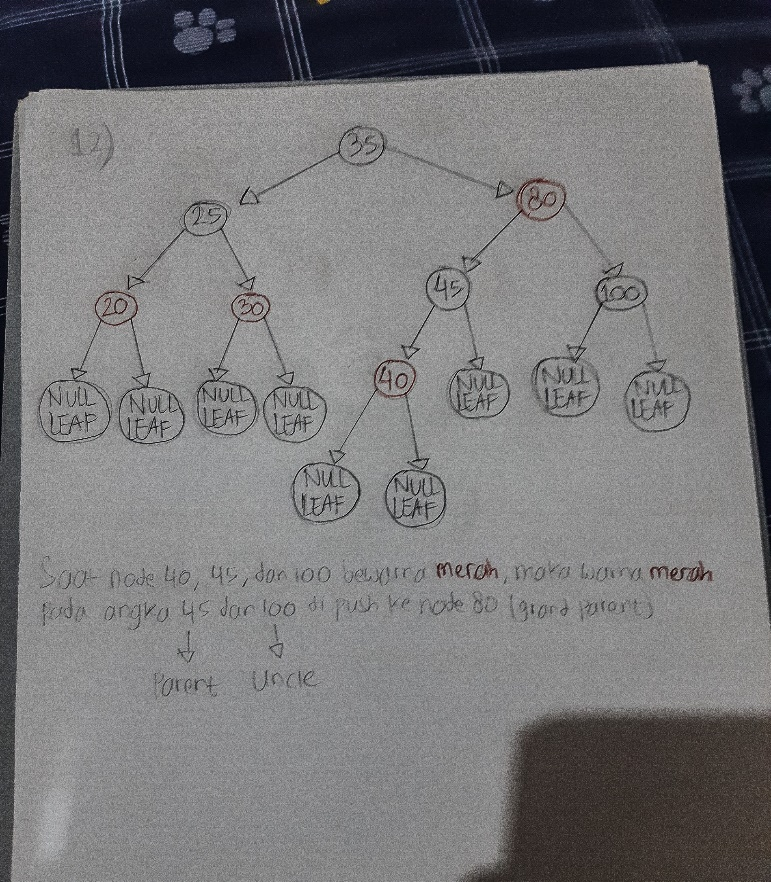 12)
35
25 80
20 30 45 100
40
NULL LEAF NULL LEAF NULL LEAF NULL LEAF NULL LEAF NULL LEAF NULL LEAF
NULL LEAF NULL LEAF
Saat node 40, 45, dan 100 bewarna merah, maka warna merah
pada angka 45 dan 100 di push ke node 80 (grand parent)
Parent Uncle